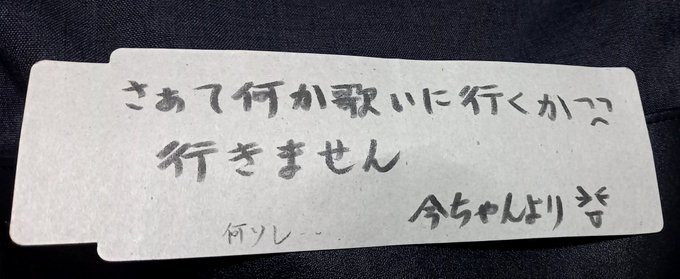 さあて何か歌いに行くか
行きません
今ちゃんより
何ソレ…